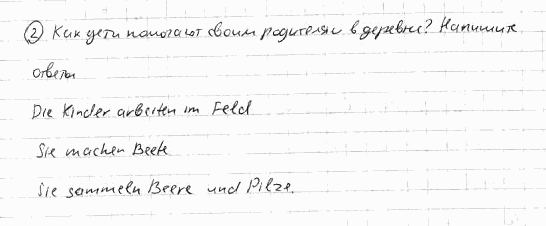 ② Как дети помогают своим родителям в деревне? Напишите
ответы
Die Kinder arbeiten im Feld
Sie machen Beete
Sie sammeln Beere und Pilze.